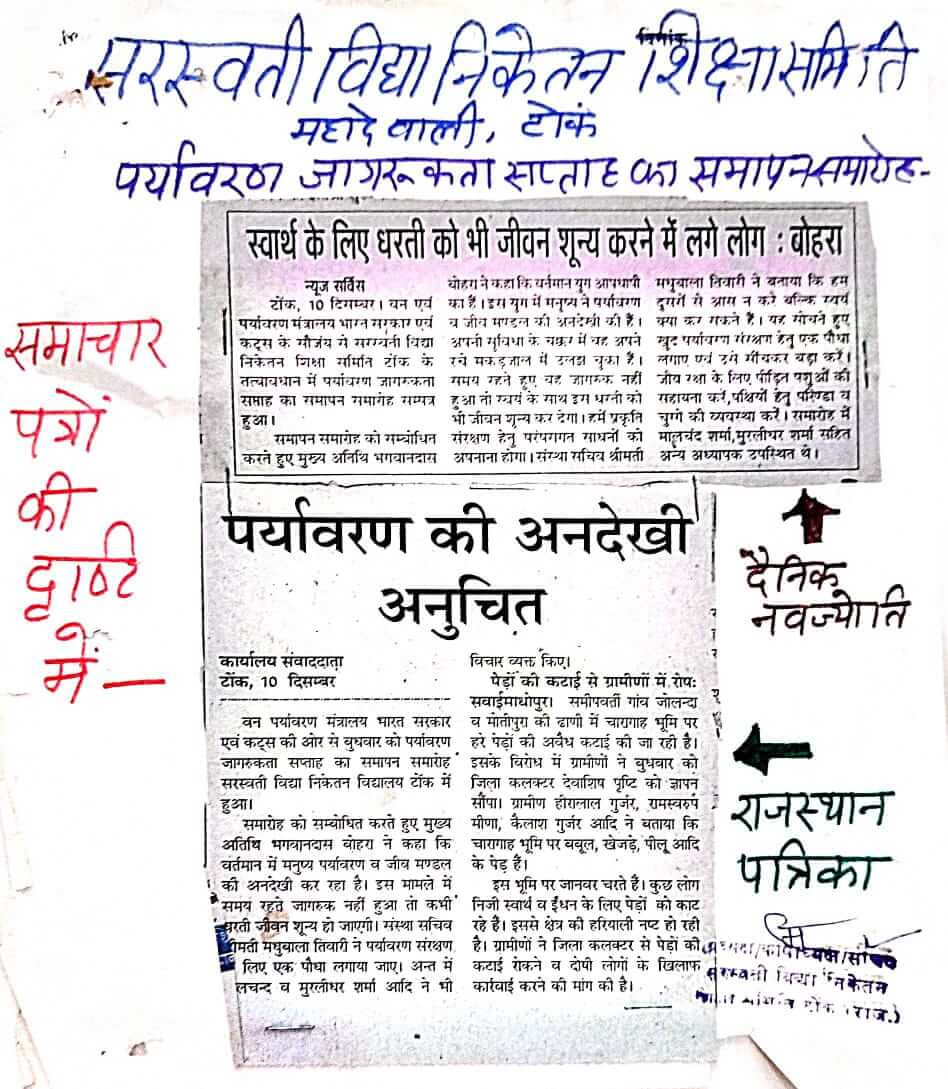 सरस्वती विद्या निकेतन शिक्षा समिति
महादेवाली, टोंक
पर्यावरण जागरूकता सप्ताह का समापन समारोह-
समाचार
पत्रों
की
दृष्टि
में —
स्वार्थ के लिए धरती को भी जीवन शून्य करने में लगे लोग : बोहरा
न्यूज सर्विस
टोंक, 10 दिसम्बर। वन एवं
पर्यावरण मंत्रालय भारत सरकार एवं
कट्स के सौजंय से सरस्वती विद्या
निकेतन शिक्षा समिति टोंक के
तत्वावधान में पर्यावरण जागरुकता
सप्ताह का समापन समारोह सम्पन्न
हुआ।
समापन समारोह को सम्बोधित
करते हुए मुख्य अतिथि भगवानदास
बोहरा ने कहा कि वर्तमान युग आपधापी
का है। इस युग में मनुष्य ने पर्यावरण
व जीव मण्डल की अनदेखी की है।
अपनी सुविधा के चक्कर में वह अपने
रचे मकड़जाल में उलझ चुका है।
समय रहते हुए वह जागरुक नहीं
हुआ तो स्वयं के साथ इस धरती को
भी जीवन शून्य कर देगा। हमें प्रकृति
संरक्षण हेतु परंपरागत साधनों को
अपनाना होगा। संस्था सचिव श्रीमती
मधुबाला तिवारी ने बताया कि हम
दुसरों से आस न करें बल्कि स्वयं
क्या कर सकते हैं। यह सोचते हुए
खुद पर्यावरण संरक्षण हेतु एक पौधा
लगाए एवं उसे सींचकर बड़ा करें।
जीव रक्षा के लिए पीड़ित पशुओं की
सहायता करें, पक्षियों हेतु परिण्डा व
चुग्गे की व्यवस्था करें। समारोह में
मालचंद शर्मा, मुरलीधर शर्मा सहित
अन्य अध्यापक उपस्थित थे।
दैनिक
नवज्योति
पर्यावरण की अनदेखी
अनुचित
कार्यालय संवाददाता
टोंक, 10 दिसम्बर
वन पर्यावरण मंत्रालय भारत सरकार
एवं कट्स की ओर से बुधवार को पर्यावरण
जागरुकता सप्ताह का समापन समारोह
सरस्वती विद्या निकेतन विद्यालय टोंक में
हुआ।
समारोह को सम्बोधित करते हुए मुख्य
अतिथि भगवानदास बोहरा ने कहा कि
वर्तमान में मनुष्य पर्यावरण व जीव मण्डल
की अनदेखी कर रहा है। इस मामले में
समय रहते जागरुक नहीं हुआ तो कभी
धरती जीवन शून्य हो जाएगी। संस्था सचिव
श्रीमती मधुबाला तिवारी ने पर्यावरण संरक्षण
लिए एक पौधा लगाया जाए। अन्त में
लचन्द व मुरलीधर शर्मा आदि ने भी
विचार व्यक्त किए।
पेड़ों की कटाई से ग्रामीणों में रोष:
सवाईमाधोपुर। समीपवर्ती गांव जोलन्दा
व मोतीपुरा की ढाणी में चारागाह भूमि पर
हरे पेड़ों की अवैध कटाई की जा रही है।
इसके विरोध में ग्रामीणों ने बुधवार को
जिला कलक्टर देवाशिष पृष्टि को ज्ञापन
सौंपा। ग्रामीण हीरालाल गुर्जर, रामस्वरुप
मीणा, कैलाश गुर्जर आदि ने बताया कि
चारागाह भूमि पर बबूल, खेजड़े, पीलू आदि
के पेड़ हैं।
इस भूमि पर जानवर चरते हैं। कुछ लोग
निजी स्वार्थ व ईंधन के लिए पेड़ों को काट
रहे हैं। इससे क्षेत्र की हरियाली नष्ट हो रही
है। ग्रामीणों ने जिला कलक्टर से पेड़ों की
कटाई रोकने व दोषी लोगों के खिलाफ
कार्रवाई करने की मांग की है।
राजस्थान
पत्रिका
अध्यक्ष/कोषाध्यक्ष/सचिव
सरस्वती विद्या निकेतन
शिक्षा समिति टोंक (राज.)